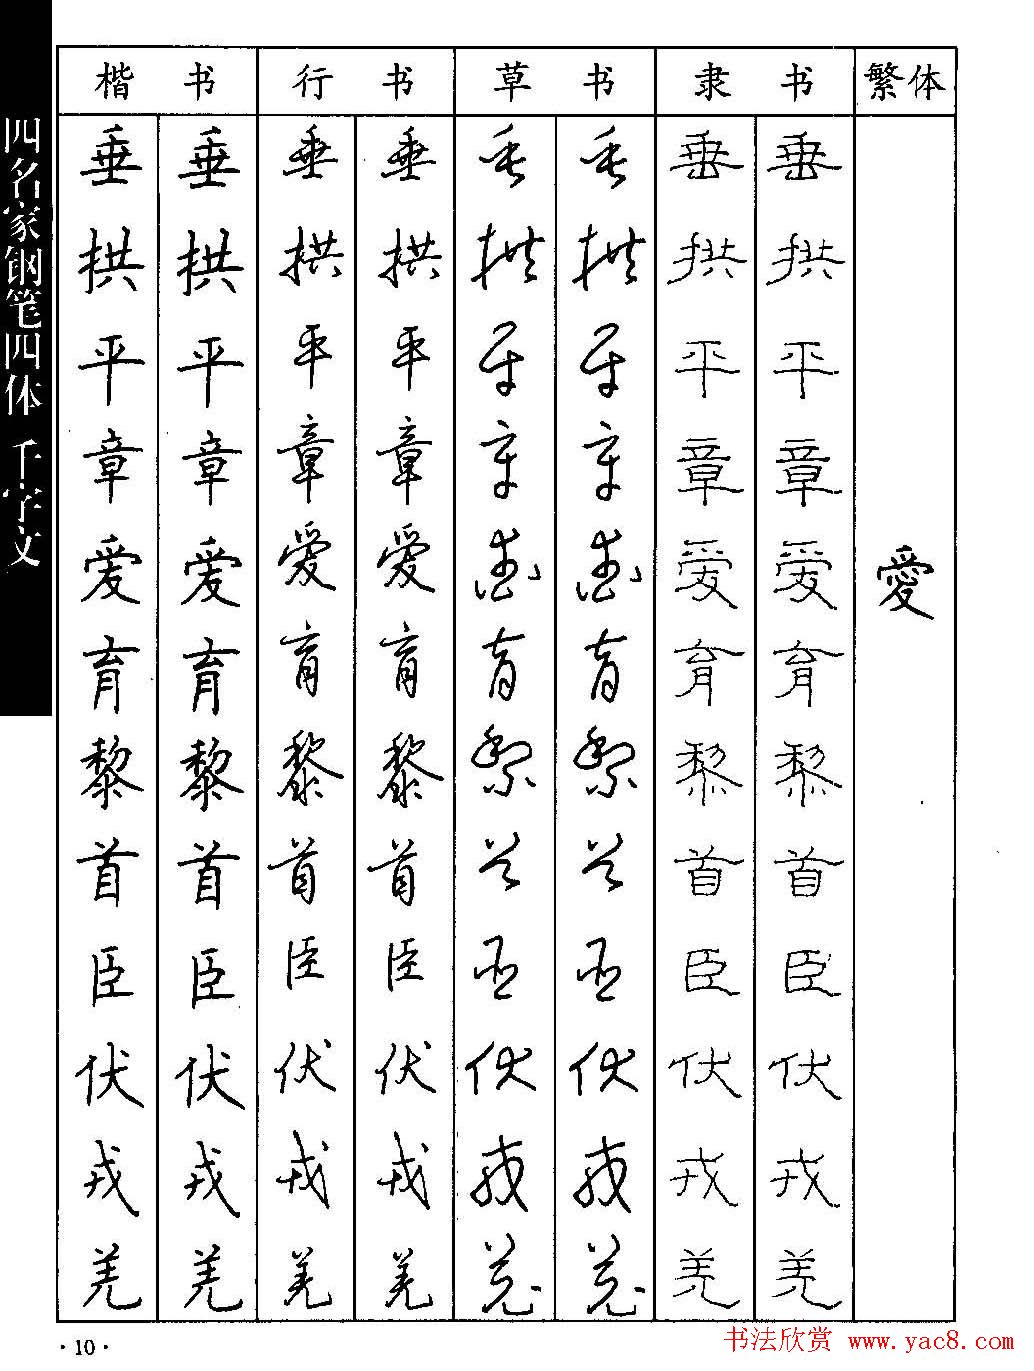 四名家钢笔四体 千字文
楷书 行书 草书 隶书 繁体
垂 垂 垂 垂 垂 垂 垂 垂
拱 拱 拱 拱 拱 拱 拱 拱
平 平 平 平 平 平 平 平
章 章 章 章 章 章 章 章
爱 爱 爱 爱 爱 爱 爱 爱 愛
育 育 育 育 育 育 育 育
黎 黎 黎 黎 黎 黎 黎 黎
首 首 首 首 首 首 首 首
臣 臣 臣 臣 臣 臣 臣 臣
伏 伏 伏 伏 伏 伏 伏 伏
戎 戎 戎 戎 戎 戎 戎 戎
羌 羌 羌 羌 羌 羌 羌 羌
·10·
书法欣赏 www.yac8.com